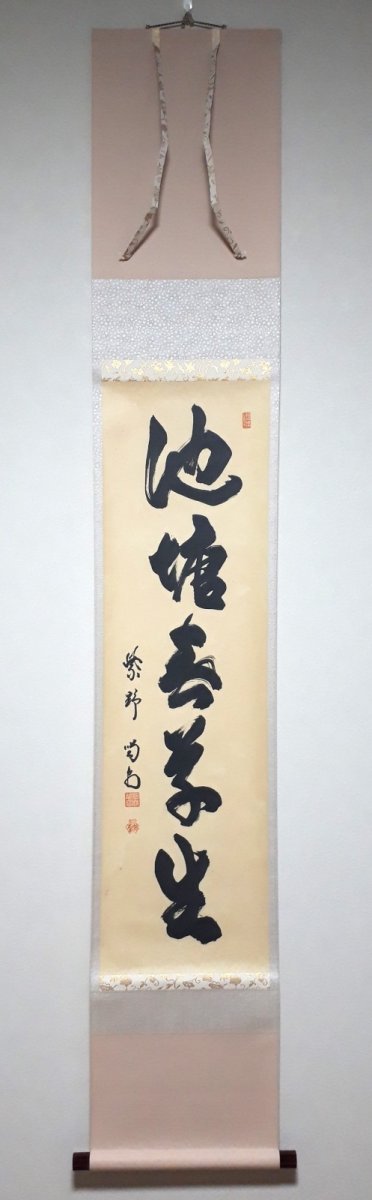 池塘春草生
紫野